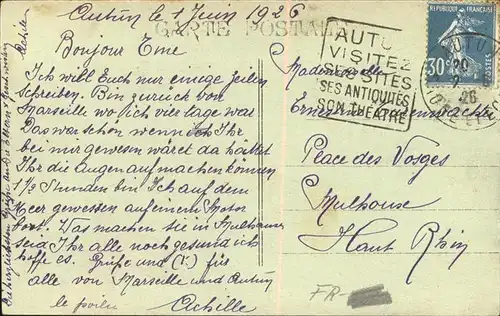 Autun le 1 Juin 1926
CARTE POSTALE
Bonjour Eme
Ich will Euch nur einige zeilen
Schreiben. Bin zurück von
Marseille wo ich vier tage war
Das war schön wenn Ihr
bei mir gewesen wäret da hattet
Ihr die Augen auf machen können
1 1/2 Stunden bin Ich auf dem
Meer gewessen auf einem Motor
bort. Was machen sie in Mulhouse
seid Ihr alle noch gesund ich
hoffe es. Grüße und (X) für
alle von Marseille und Autun
le poilu Achille
Achille
AUTU
VISITEZ
SES SITES
SES ANTIQUITÉS
SON THÉATRE
RÉPUBLIQUE FRANÇAISE
30
26
Mademoiselle
Place des Vosges
Mulhouse
Haut Rhin
FR-